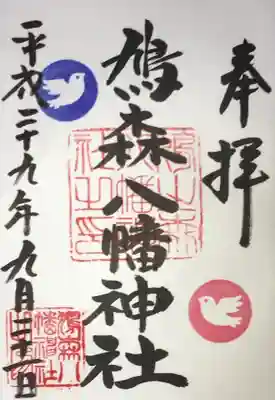 奉拝
鳩森八幡神社
平成二十九年九月二十一日